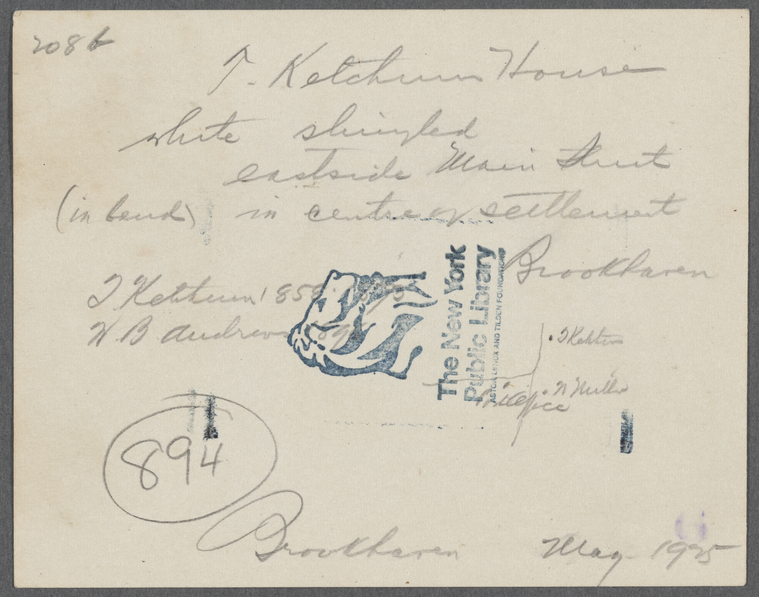 208b
T. Ketchum House
white shingled
eastside Main Street
(in bend) in centre of settlement
Brookhaven
T Ketchum 1858
W B Andrews
The New York
Public Library
ASTOR LENOX AND TILDEN FOUNDATIONS
T Ketchum
N Miller
894
Brookhaven May 1925